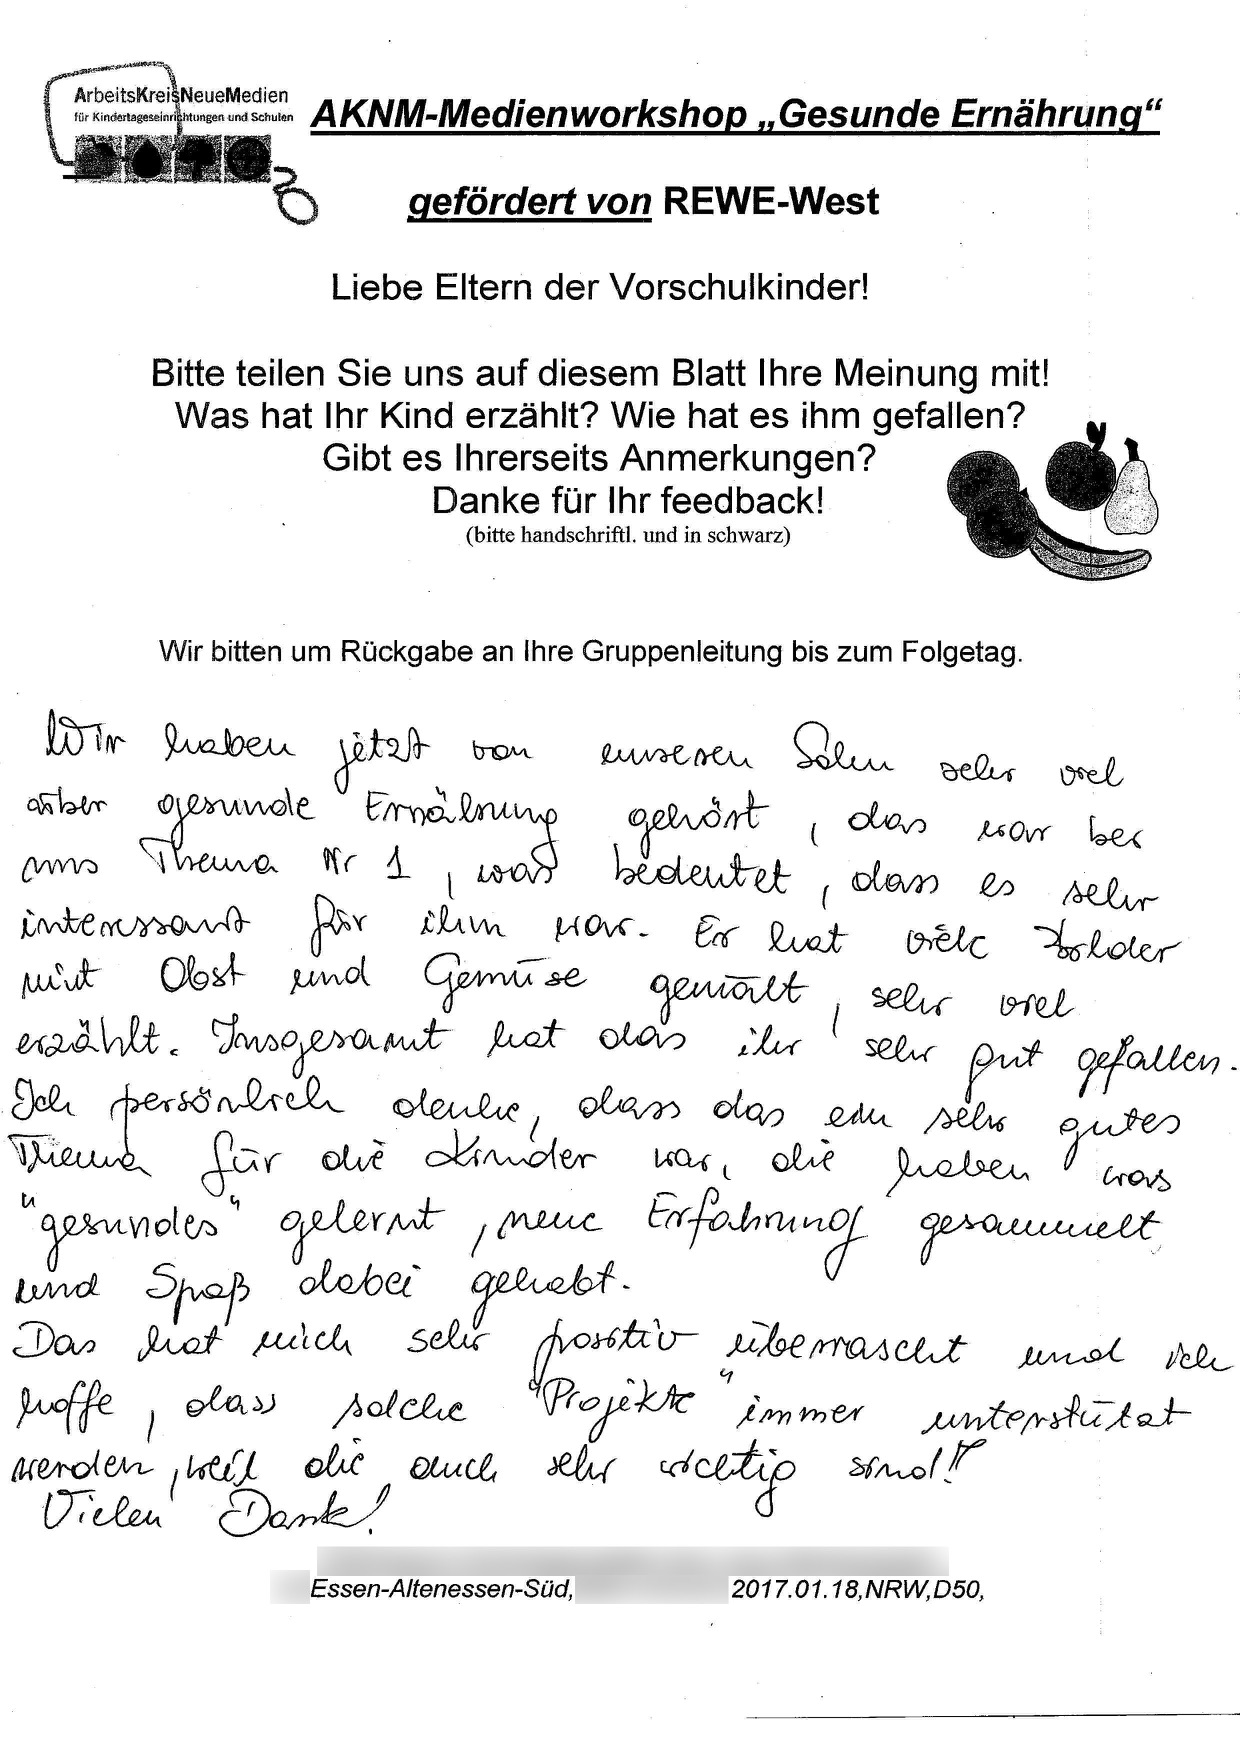 ArbeitsKreisNeueMedien
für Kindertageseinrichtungen und Schulen
AKNM-Medienworkshop „Gesunde Ernährung“
gefördert von REWE-West
Liebe Eltern der Vorschulkinder!
Bitte teilen Sie uns auf diesem Blatt Ihre Meinung mit!
Was hat Ihr Kind erzählt? Wie hat es ihm gefallen?
Gibt es Ihrerseits Anmerkungen?
Danke für Ihr feedback!
(bitte handschriftl. und in schwarz)
Wir bitten um Rückgabe an Ihre Gruppenleitung bis zum Folgetag.
Wir haben jetzt von unseren Sohn sehr viel
über gesunde Ernährung gehört, das war bei
uns Thema Nr 1, was bedeutet, dass es sehr
interessant für ihm war. Er hat viele Bilder
mit Obst und Gemüse gemalt, sehr viel
erzählt. Insgesamt hat das ihr sehr gut gefallen.
Ich persönlich denke, dass das ein sehr gutes
Thema für die Kinder war, die haben was
"gesundes" gelernt, neue Erfahrung gesammelt
und Spaß dabei gehabt.
Das hat mich sehr positiv überrascht und ich
hoffe, dass solche "Projekte" immer unterstützt
werden, weil die auch sehr wichtig sind!!
Vielen Dank!
Essen-Altenessen-Süd, 2017.01.18,NRW,D50,